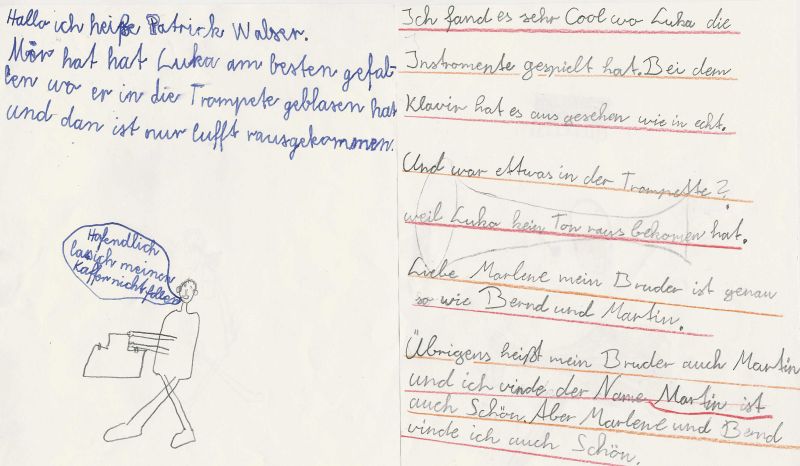 Hallo ich heiße Patrick Walser.
Mir hat hat Luka am besten gefal-
len wo er in die Trompete geblasen hat
und dan ist nur lufft rausgekommen.
Hofendlich
las ich meinen
Kaffer nicht fallen
Ich fand es sehr Cool wo Luka die
Instromente gespielt hat. Bei dem
Klavir hat es aus gesehen wie in echt.
Und war ettwas in der Trompette?
weil Luka kein Ton raus bekomen hat.
Liebe Marlene mein Bruder ist genau
so wie Bernd und Martin.
Übrigens heißt mein Bruder auch Martin
und ich vinde der Name Martin ist
auch Schön. Aber Marlene und Bernd
vinde ich auch Schön.